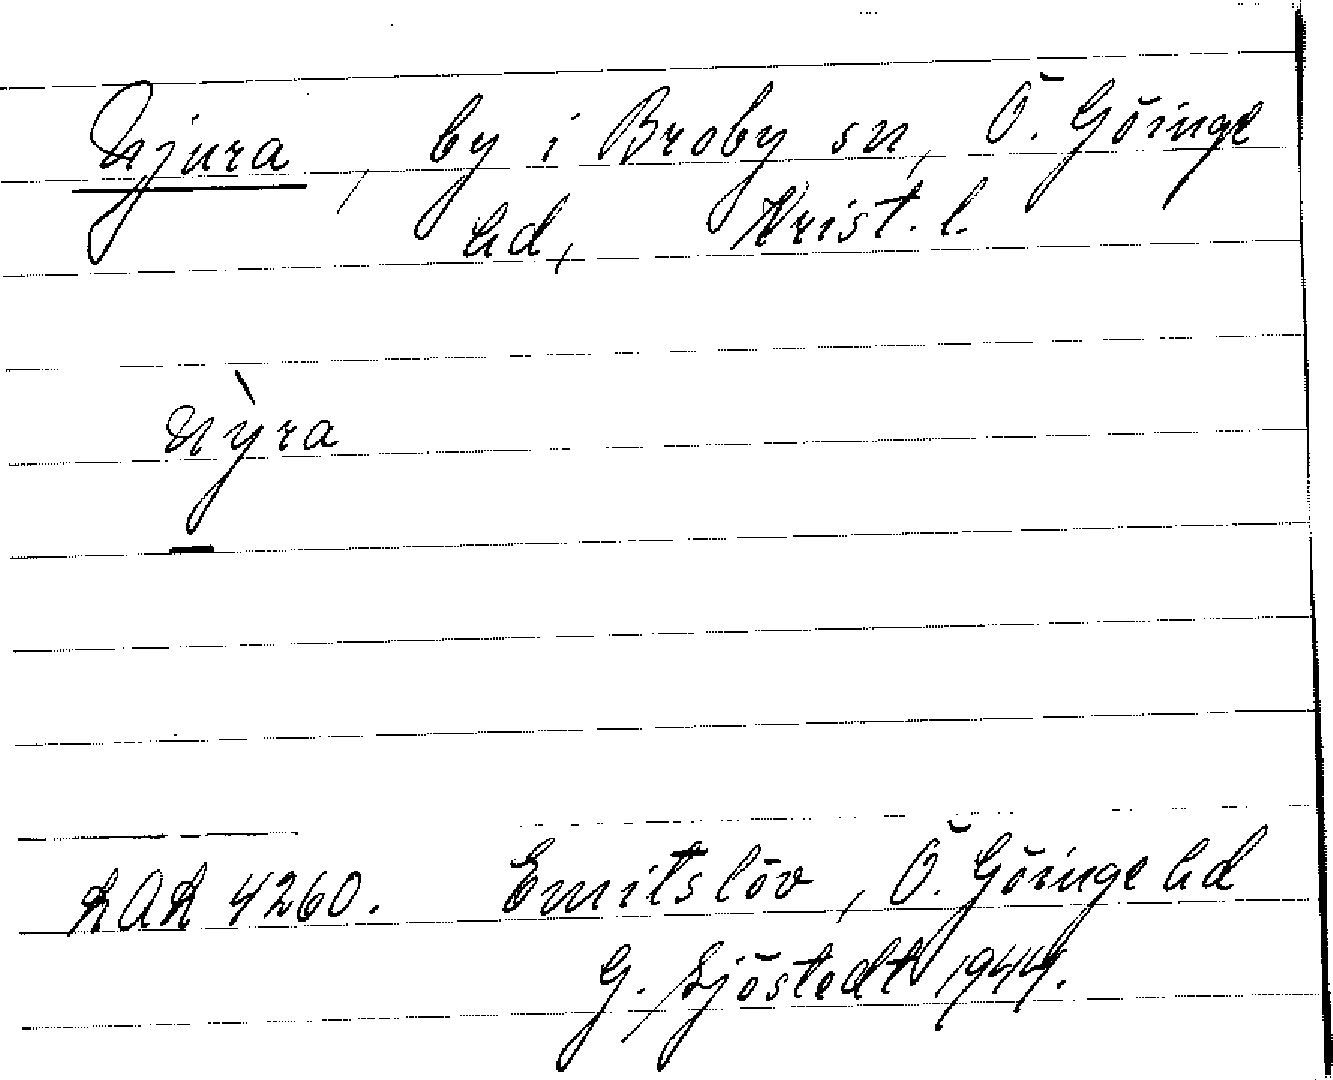 Njura, by i Broby sn, Ö. Göinge
hd, Krist. l.
nỳra
LAL 4260. Emitslöv, Ö. Göinge hd
G. Sjöstedt 1944.